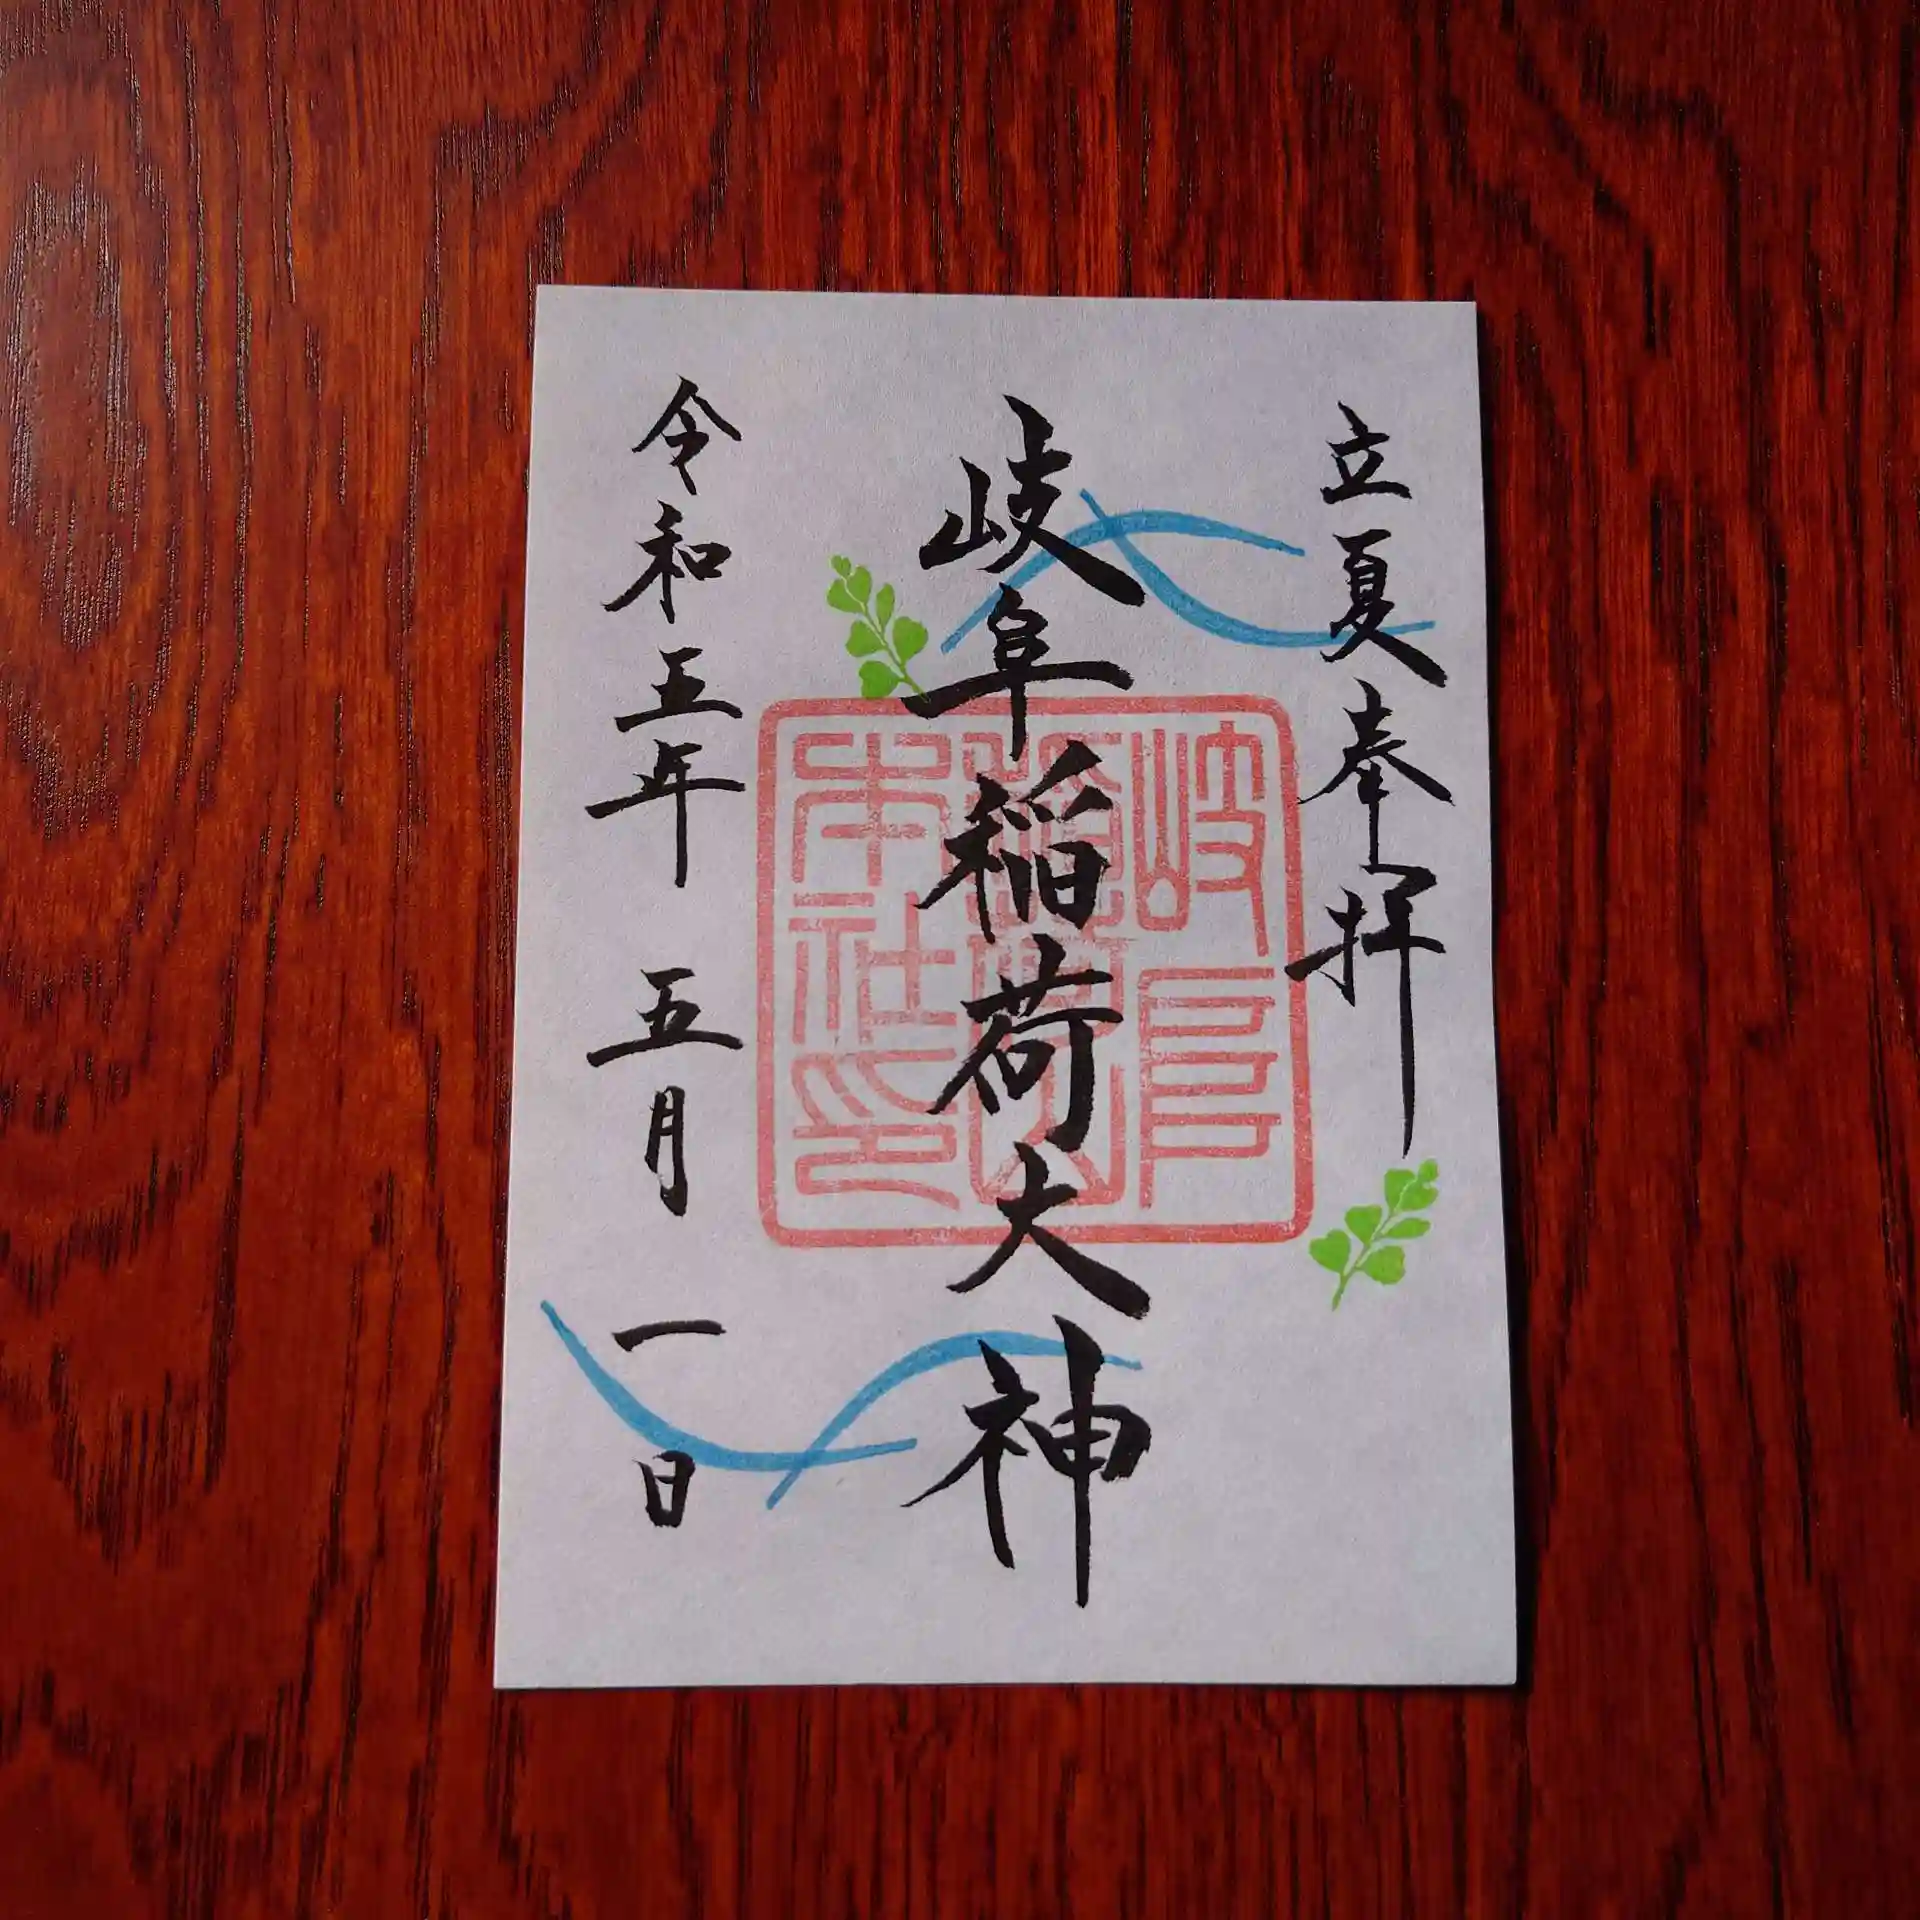 立夏奉拝
岐阜稲荷大神
令和五年 五月 一 日
岐阜
本社印